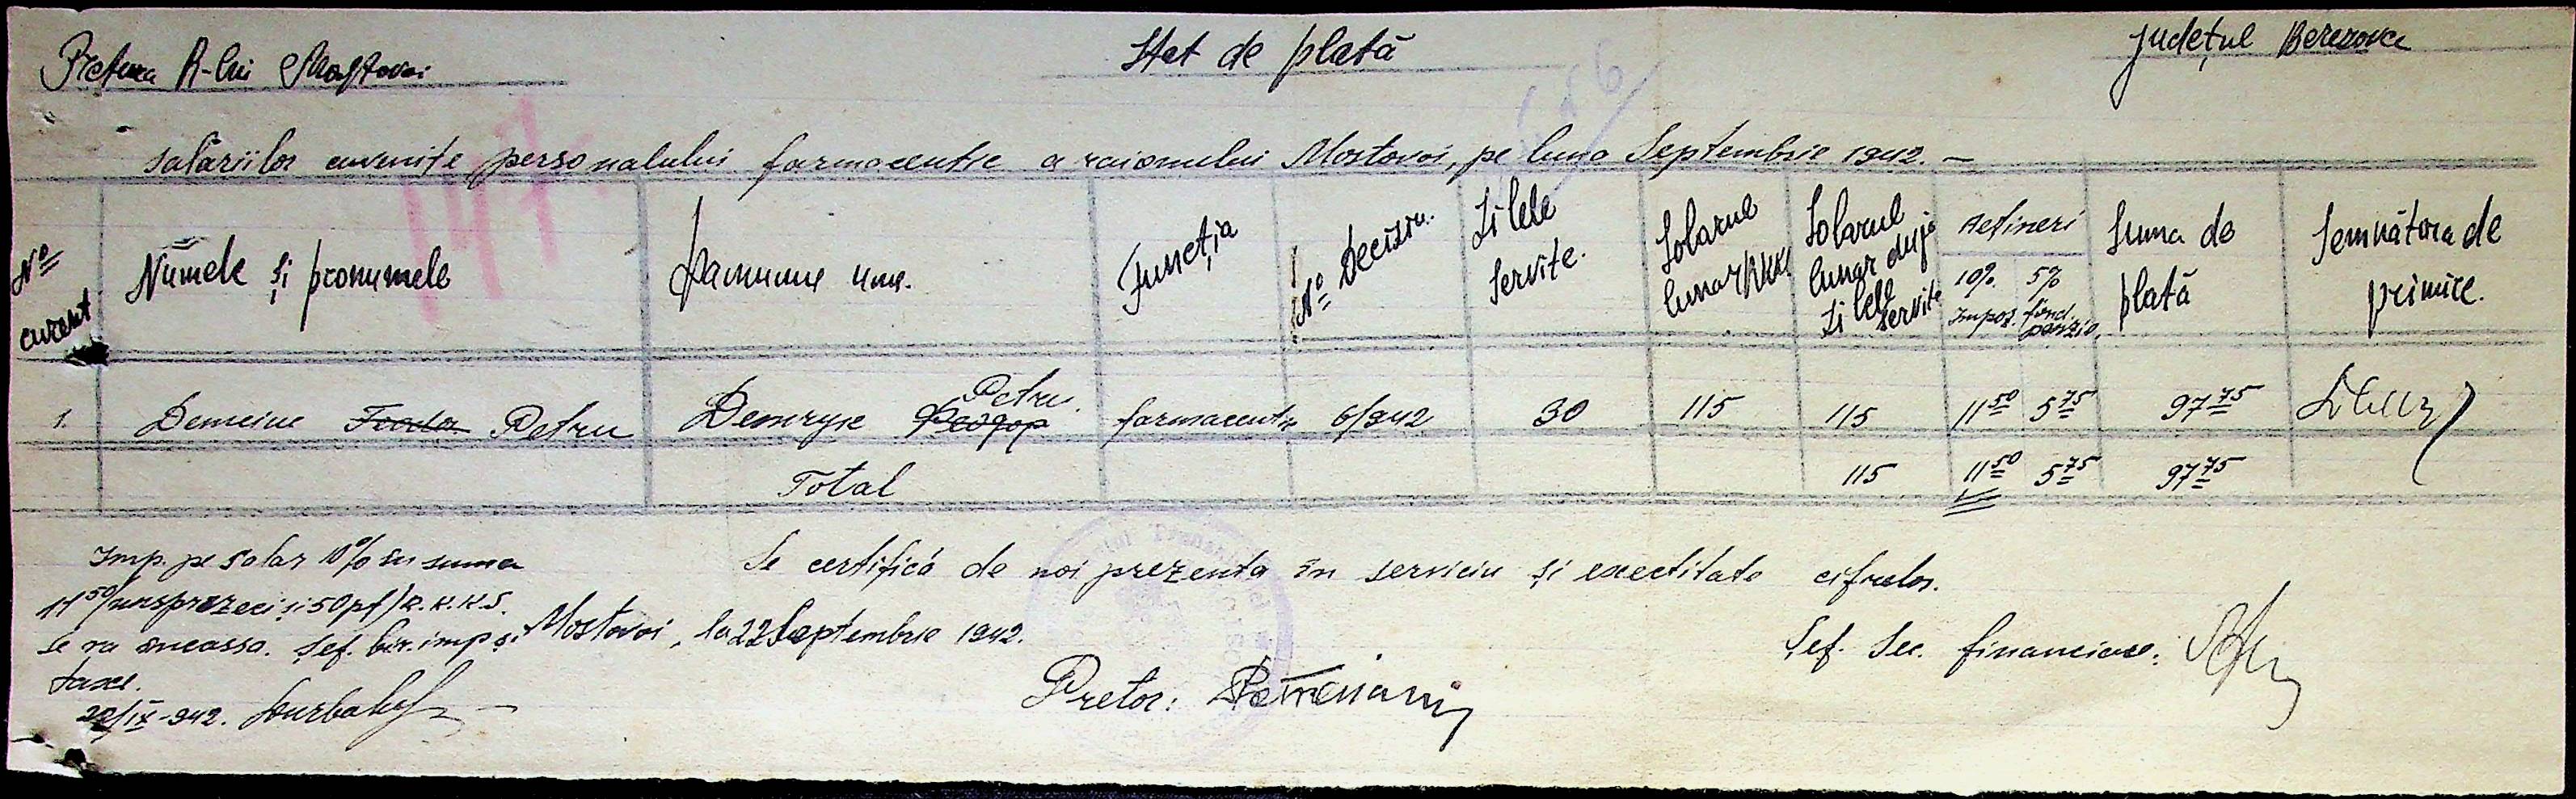 Pretura R-lui Mostovoi
Stat de plată
Județul Berezovca
salăriilor cuvenite personalului farmaceutic a raionului Mostovoi, pe luna Septembrie 1942. —
147
No curent
Numele și pronumele
Функția
No Deciziu.
Zilele servite.
Salarul lunar RKKS
Salarul lunar după zilele servite
Rețineri
10% Impoz.
5% fond. penzie
Suma de plată
Semnătura de primire.
1. Demciuc Feodor Petru Демчук Федор Petru farmaceutic 6/942 30 115 115 11 50 5 75 97 75
Total 115 11 50 5 75 97 75
Imp. pe salar 10% în suma
11 50/unsprezeci și 50 pf/ R.K.K.S.
se va încassa. Șef. bir. imp și
taxe.
22/IX-942.
Se certifică de noi prezenta în serviciu și exectitate cifrelor.
Mostovoi, la 22 Septembrie 1942.
Pretor:
Șef. Sec. financiare: